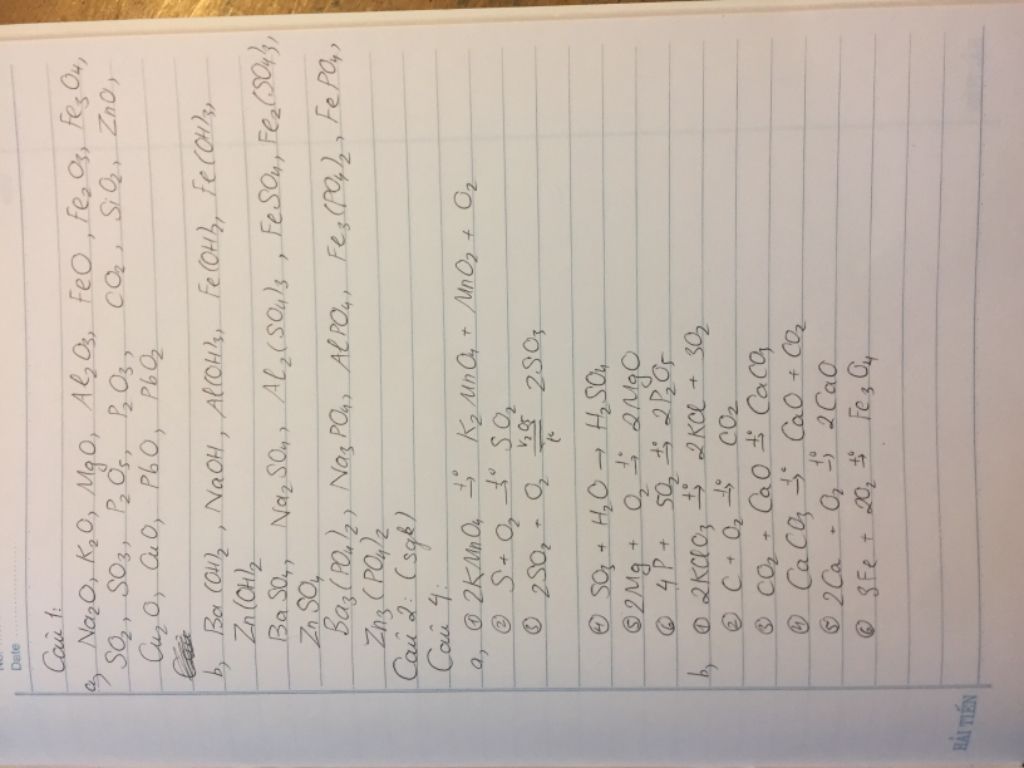 No.
Date
Câu 1:
a, Na2O, K2O, MgO, Al2O3, FeO, Fe2O3, Fe3O4,
SO2, SO3, P2O5, P2O3, CO2, SiO2, ZnO,
Cu2O, CuO, PbO, PbO2
b, Ba(OH)2, NaOH, Al(OH)3, Fe(OH)2, Fe(OH)3,
Zn(OH)2
BaSO4, Na2SO4, Al2(SO4)3, FeSO4, Fe2(SO4)3,
ZnSO4
Ba3(PO4)2, Na3PO4, AlPO4, Fe3(PO4)2, FePO4,
Zn3(PO4)2
Câu 2: (sgk)
Câu 4:
a, ① 2KMnO4 t°→ K2MnO4 + MnO2 + O2
② S + O2 t°→ SO2
① 2SO2 + O2 V2O5 t° 2SO3
④ SO3 + H2O → H2SO4
⑤ 2Mg + O2 t°→ 2MgO
⑥ 4P + 5O2 t°→ 2P2O5
b, ① 2KClO3 t°→ 2KCl + 3O2
② C + O2 t°→ CO2
③ CO2 + CaO t°→ CaCO3
④ CaCO3 t°→ CaO + CO2
⑤ 2Ca + O2 t°→ 2CaO
⑥ 3Fe + 2O2 t°→ Fe3O4
HẢI TIẾN